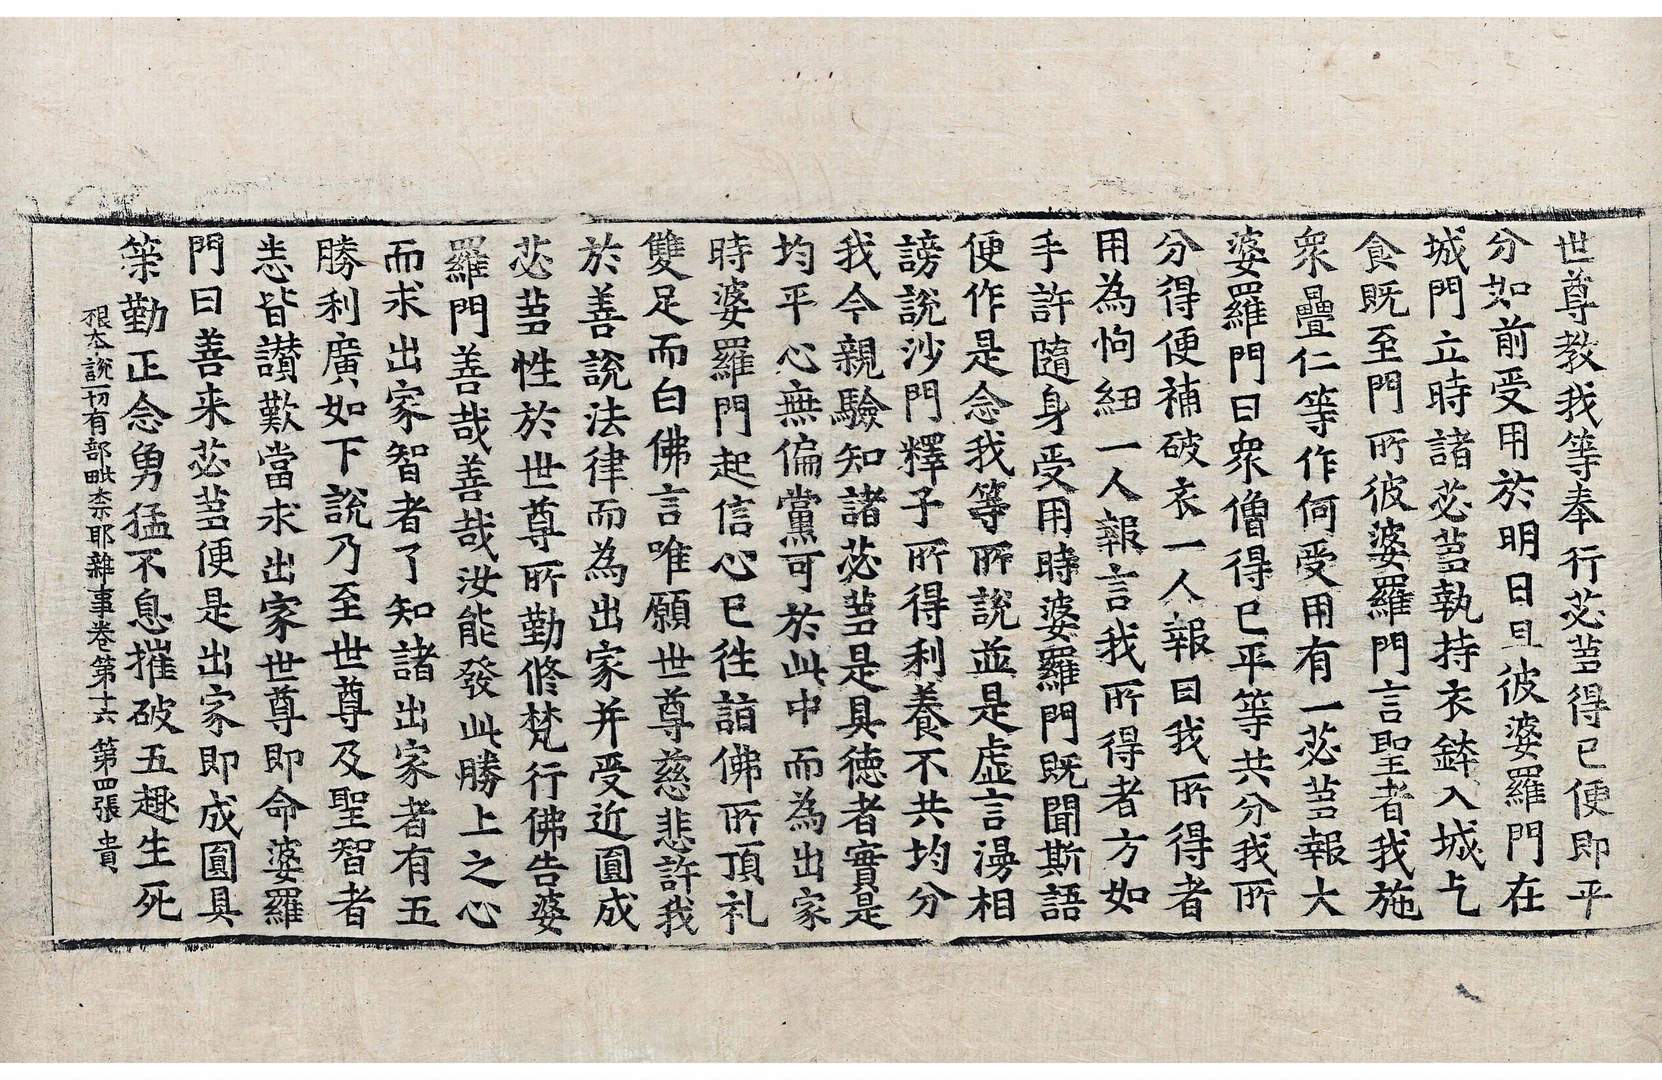 世尊教我等奉行苾芻得已便即平
分如前受用於明日旦彼婆羅門在
城門立時諸苾芻執持衣鉢入城乞
食既至門所彼婆羅門言聖者我施
衆疊仁等作何受用有一苾芻報大
婆羅門曰衆僧得已平等共分我所
分得便補破衣一人報曰我所得者
用為怐紐一人報言我所得者方如
手許隨身受用時婆羅門既聞斯語
便作是念我等所說並是虛言漫相
謗說沙門釋子所得利養不共均分
我今親驗知諸苾芻是具德者實是
均平心無偏黨可於此中而為出家
時婆羅門起信心已往詣佛所頂礼
雙足而白佛言唯願世尊慈悲許我
於善說法律而為出家并受近圓成
苾芻性於世尊所勤修梵行佛告婆
羅門善哉善哉汝能發此勝上之心
而求出家智者了知諸出家者有五
勝利廣如下說乃至世尊及聖智者
悉皆讃歎當求出家世尊即命婆羅
門曰善来苾芻便是出家即成圓具
策勤正念勇猛不息摧破五趣生死
根本說一切有部毗柰耶雜事卷第十六 第四張 貴